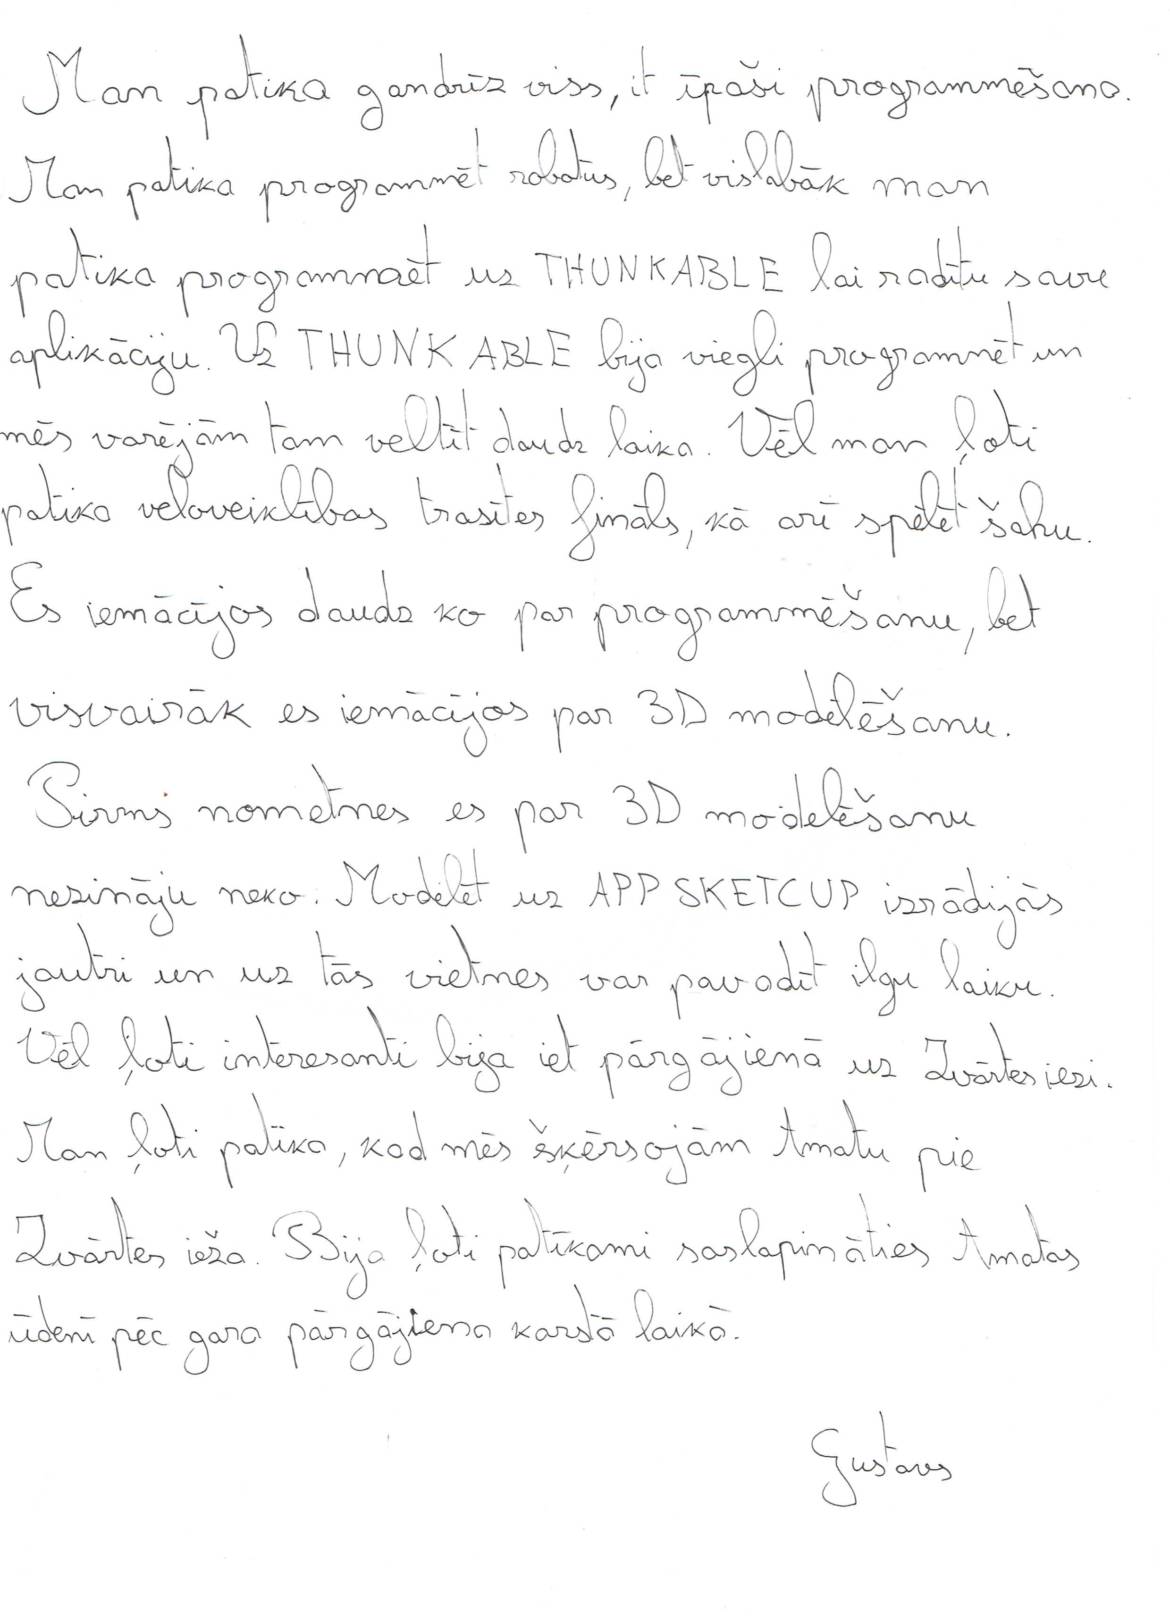 Man patika gandrīz viss, it īpaši programmēšana.
Man patika programmēt robotus, bet vislabāk man
patika programmēt uz THUNKABLE lai radītu savu
aplikāciju. Uz THUNKABLE bija viegli programmēt un
mēs varējām tam veltīt daudz laika. Vēl man ļoti
patika veloveiklības trasītes fināls, kā arī spēlēt šahu.
Es iemācījos daudz ko par programmēšanu, bet
visvairāk es iemācījos par 3D modelēšanu.
Pirms nometnes es par 3D modelēšanu
nezināju neko. Modelēt uz APP SKETCUP izrādījās
jautri un uz tās vietnes var pavadīt ilgu laiku.
Vēl ļoti interesanti bija iet pārgājienā uz Zvārtes iezi.
Man ļoti patika, kad mēs šķērsojām Amatu pie
Zvārtes ieža. Bija ļoti patīkami saslapināties Amatas
ūdenī pēc gara pārgājiena karstā laikā.
Gustavs